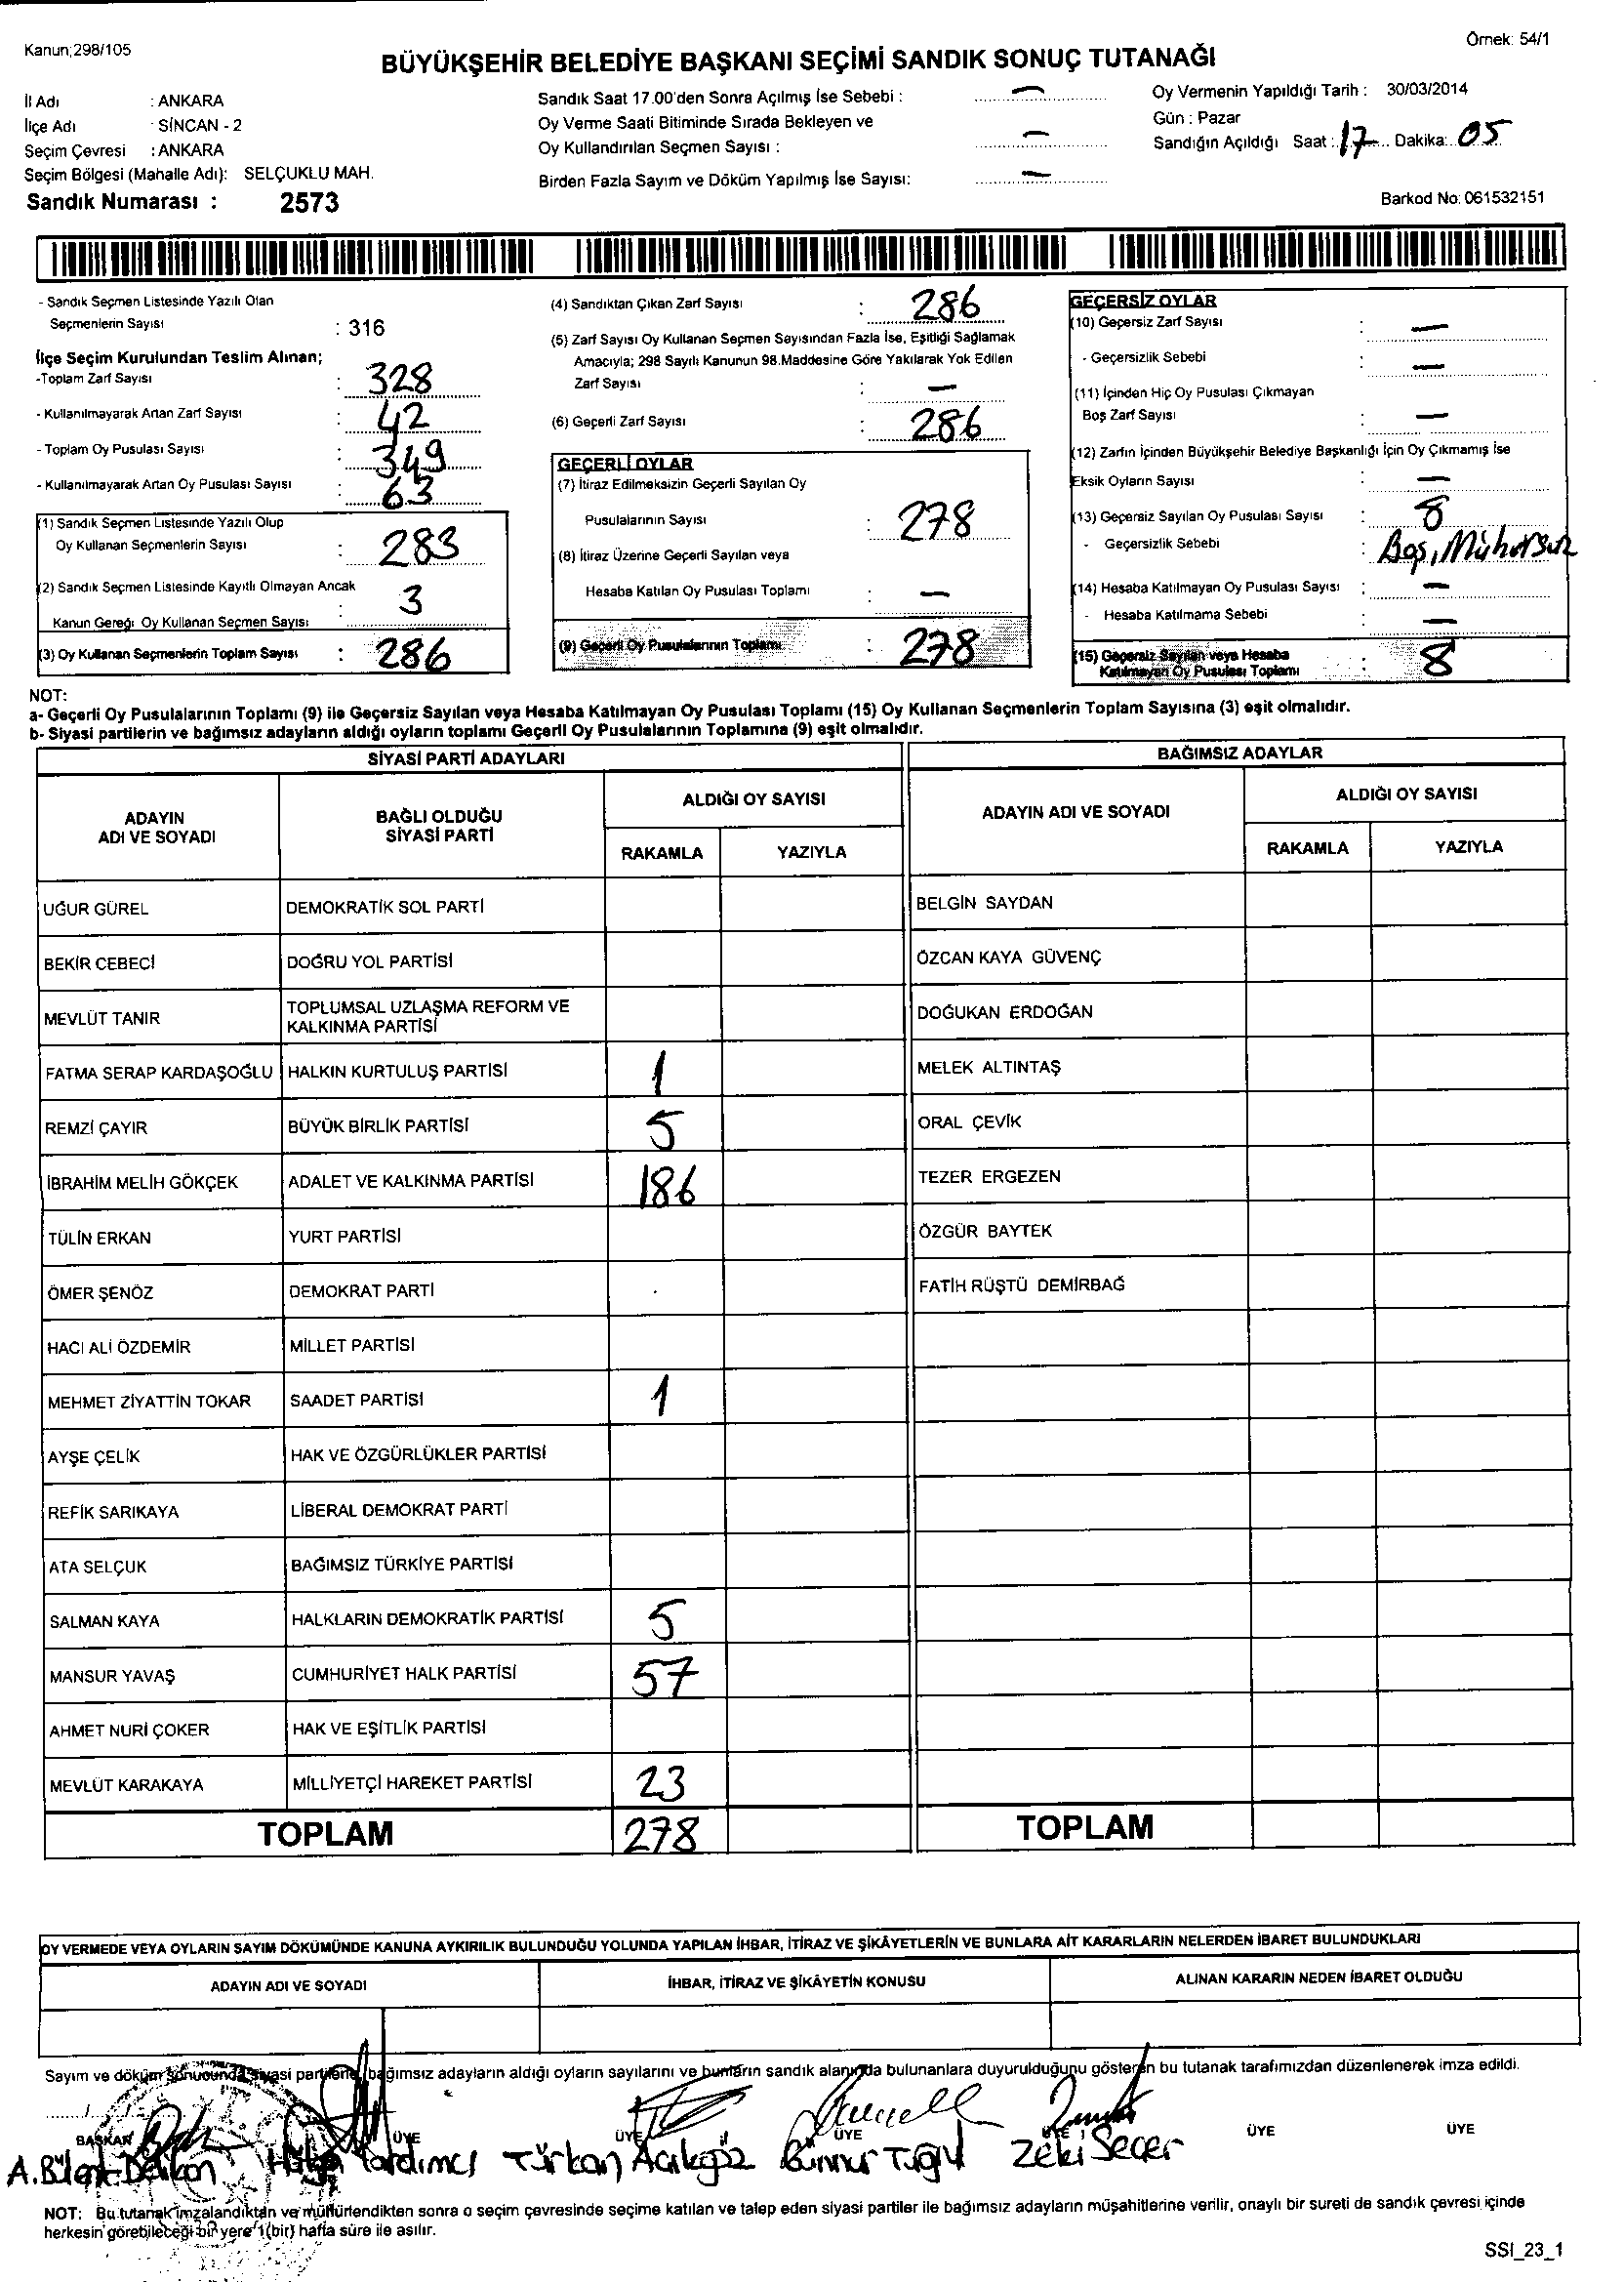 Kanun;298/105
Örnek: 54/1
BÜYÜKŞEHİR BELEDİYE BAŞKANI SEÇİMİ SANDIK SONUÇ TUTANAĞI
İl Adı : ANKARA
İlçe Adı : SİNCAN - 2
Seçim Çevresi : ANKARA
Seçim Bölgesi (Mahalle Adı): SELÇUKLU MAH.
Sandık Numarası : 2573
Sandık Saat 17.00'den Sonra Açılmış İse Sebebi : —
Oy Verme Saati Bitiminde Sırada Bekleyen ve
Oy Kullandırılan Seçmen Sayısı : —
Birden Fazla Sayım ve Döküm Yapılmış İse Sayısı: —
Oy Vermenin Yapıldığı Tarih : 30/03/2014
Gün : Pazar
Sandığın Açıldığı Saat : 17 Dakika: 05
Barkod No: 061532151
- Sandık Seçmen Listesinde Yazılı Olan
Seçmenlerin Sayısı : 316
İlçe Seçim Kurulundan Teslim Alınan;
-Toplam Zarf Sayısı : 328
- Kullanılmayarak Artan Zarf Sayısı : 42
- Toplam Oy Pusulası Sayısı : 349
- Kullanılmayarak Artan Oy Pusulası Sayısı : 63
(1) Sandık Seçmen Listesinde Yazılı Olup
Oy Kullanan Seçmenlerin Sayısı : 283
(2) Sandık Seçmen Listesinde Kayıtlı Olmayan Ancak
Kanun Gereği Oy Kullanan Seçmen Sayısı : 3
(3) Oy Kullanan Seçmenlerin Toplam Sayısı : 286
(4) Sandıktan Çıkan Zarf Sayısı : 286
(5) Zarf Sayısı Oy Kullanan Seçmen Sayısından Fazla İse, Eşitliği Sağlamak
Amacıyla; 298 Sayılı Kanunun 98.Maddesine Göre Yakılarak Yok Edilen
Zarf Sayısı : —
(6) Geçerli Zarf Sayısı : 286
GEÇERLİ OYLAR
(7) İtiraz Edilmeksizin Geçerli Sayılan Oy
Pusulalarının Sayısı : 278
(8) İtiraz Üzerine Geçerli Sayılan veya
Hesaba Katılan Oy Pusulası Toplamı : —
(9) Geçerli Oy Pusulalarının Toplamı : 278
GEÇERSİZ OYLAR
(10) Geçersiz Zarf Sayısı : —
- Geçersizlik Sebebi : —
(11) İçinden Hiç Oy Pusulası Çıkmayan
Boş Zarf Sayısı : —
(12) Zarfın İçinden Büyükşehir Belediye Başkanlığı İçin Oy Çıkmamış İse
Eksik Oyların Sayısı : —
(13) Geçersiz Sayılan Oy Pusulası Sayısı : 8
- Geçersizlik Sebebi : Boş, Mühürsüz
(14) Hesaba Katılmayan Oy Pusulası Sayısı : —
- Hesaba Katılmama Sebebi : —
(15) Geçersiz Sayılan veya Hesaba
Katılmayan Oy Pusulası Toplamı : 8
NOT:
a- Geçerli Oy Pusulalarının Toplamı (9) ile Geçersiz Sayılan veya Hesaba Katılmayan Oy Pusulası Toplamı (15) Oy Kullanan Seçmenlerin Toplam Sayısına (3) eşit olmalıdır.
b- Siyasi partilerin ve bağımsız adayların aldığı oyların toplamı Geçerli Oy Pusulalarının Toplamına (9) eşit olmalıdır.
SİYASİ PARTİ ADAYLARI
BAĞIMSIZ ADAYLAR
ADAYIN
ADI VE SOYADI
BAĞLI OLDUĞU
SİYASİ PARTİ
ALDIĞI OY SAYISI
RAKAMLA YAZIYLA
ADAYIN ADI VE SOYADI
ALDIĞI OY SAYISI
RAKAMLA YAZIYLA
UĞUR GÜREL DEMOKRATİK SOL PARTİ BELGİN SAYDAN
BEKİR CEBECİ DOĞRU YOL PARTİSİ ÖZCAN KAYA GÜVENÇ
MEVLÜT TANIR TOPLUMSAL UZLAŞMA REFORM VE
KALKINMA PARTİSİ DOĞUKAN ERDOĞAN
FATMA SERAP KARDAŞOĞLU HALKIN KURTULUŞ PARTİSİ 1 MELEK ALTINTAŞ
REMZİ ÇAYIR BÜYÜK BİRLİK PARTİSİ 5 ORAL ÇEVİK
İBRAHİM MELİH GÖKÇEK ADALET VE KALKINMA PARTİSİ 186 TEZER ERGEZEN
TÜLİN ERKAN YURT PARTİSİ ÖZGÜR BAYTEK
ÖMER ŞENÖZ DEMOKRAT PARTİ FATİH RÜŞTÜ DEMİRBAĞ
HACI ALİ ÖZDEMİR MİLLET PARTİSİ
MEHMET ZİYATTİN TOKAR SAADET PARTİSİ 1
AYŞE ÇELİK HAK VE ÖZGÜRLÜKLER PARTİSİ
REFİK SARIKAYA LİBERAL DEMOKRAT PARTİ
ATA SELÇUK BAĞIMSIZ TÜRKİYE PARTİSİ
SALMAN KAYA HALKLARIN DEMOKRATİK PARTİSİ 5
MANSUR YAVAŞ CUMHURİYET HALK PARTİSİ 57
AHMET NURİ ÇOKER HAK VE EŞİTLİK PARTİSİ
MEVLÜT KARAKAYA MİLLİYETÇİ HAREKET PARTİSİ 23
TOPLAM 278 TOPLAM
OY VERMEDE VEYA OYLARIN SAYIM DÖKÜMÜNDE KANUNA AYKIRILIK BULUNDUĞU YOLUNDA YAPILAN İHBAR, İTİRAZ VE ŞİKÂYETLERİN VE BUNLARA AİT KARARLARIN NELERDEN İBARET BULUNDUKLARI
ADAYIN ADI VE SOYADI İHBAR, İTİRAZ VE ŞİKÂYETİN KONUSU ALINAN KARARIN NEDEN İBARET OLDUĞU
Sayım ve döküm sonucunda siyasi partilerle, bağımsız adayların aldığı oyların sayılarını ve bunların sandık alanında bulunanlara duyurulduğunu gösteren bu tutanak tarafımızdan düzenlenerek imza edildi.
BAŞKAN ÜYE ÜYE ÜYE ÜYE ÜYE ÜYE
Yardımcı Türkan Açıkgöz Binnur Zeki Seçer
NOT: Bu tutanak imzalandıktan ve mühürlendikten sonra o seçim çevresinde seçime katılan ve talep eden siyasi partiler ile bağımsız adayların müşahitlerine verilir, onaylı bir sureti de sandık çevresi içinde
herkesin görebileceği bir yere 1(bir) hafta süre ile asılır.
SSI_23_1